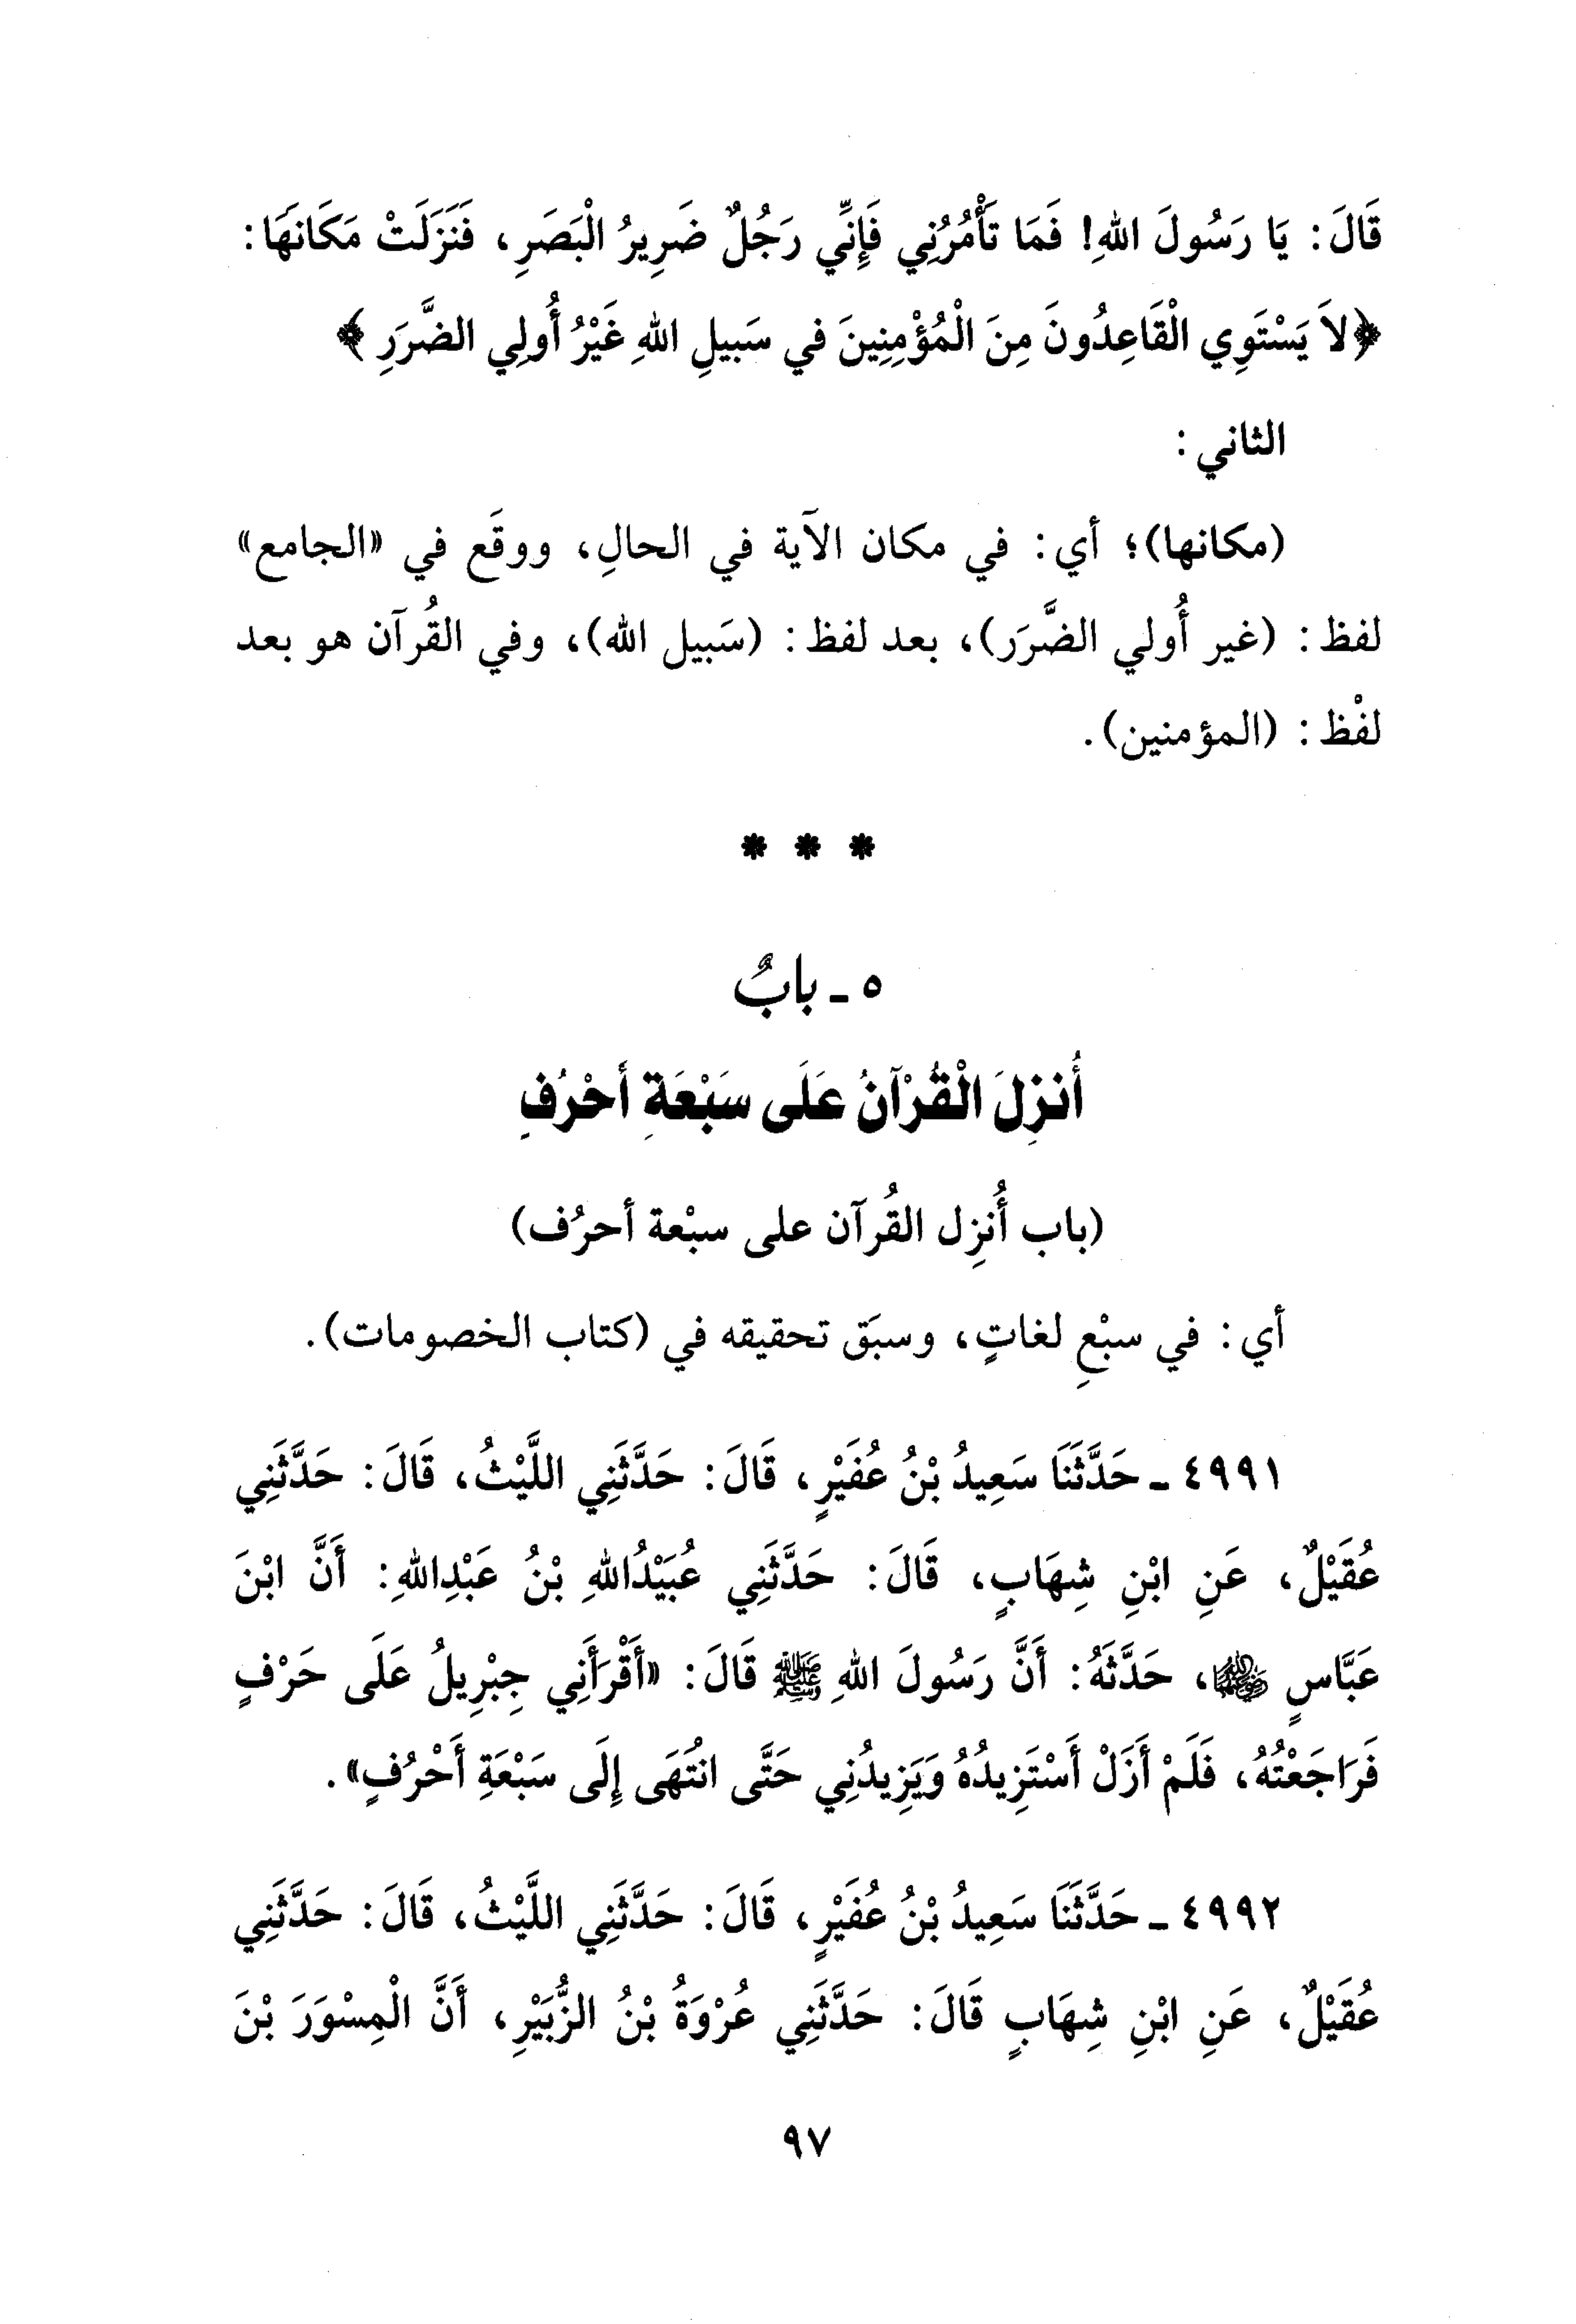 قَالَ: يَا رَسُولَ اللهِ! فَمَا تَأْمُرُنِي فَإِنِّي رَجُلٌ ضَرِيرُ الْبَصَرِ، فَنَزَلَتْ مَكَانَهَا:
﴿لاَ يَسْتَوِي الْقَاعِدُونَ مِنَ الْمُؤْمِنِينَ في سَبِيلِ اللهِ غَيْرُ أُولِي الضَّرَرِ﴾
الثاني:
(مكانها)؛ أي: في مكان الآية في الحالِ، ووقَع في «الجامع»
لفظ: (غير أُولي الضَّرَر)، بعد لفظ: (سَبيل الله)، وفي القُرآن هو بعد
لفْظ: (المؤمنين).
* * *
٥ ـ بابٌ
أُنزِلَ الْقُرْآنُ عَلَى سَبْعَةِ أَحْرُفٍ
(باب أُنزِل القُرآن على سبْعة أحرُف)
أي: في سبْعِ لغاتٍ، وسبَق تحقيقه في (كتاب الخصومات).
٤٩٩١ ـ حَدَّثَنَا سَعِيدُ بْنُ عُفَيْرٍ، قَالَ: حَدَّثَنِي اللَّيْثُ، قَالَ: حَدَّثَنِي
عُقَيْلٌ، عَنِ ابْنِ شِهَابٍ، قَالَ: حَدَّثَنِي عُبَيْدُاللهِ بْنُ عَبْدِاللهِ: أَنَّ ابْنَ
عَبَّاسٍ ﵄، حَدَّثَهُ: أَنَّ رَسُولَ اللهِ ﷺ قَالَ: «أَقْرَأَنِي جِبْرِيلُ عَلَى حَرْفٍ
فَرَاجَعْتُهُ، فَلَمْ أَزَلْ أَسْتَزِيدُهُ وَيَزِيدُنِي حَتَّى انْتَهَى إِلَى سَبْعَةِ أَحْرُفٍ».
٤٩٩٢ ـ حَدَّثَنَا سَعِيدُ بْنُ عُفَيْرٍ، قَالَ: حَدَّثَنِي اللَّيْثُ، قَالَ: حَدَّثَنِي
عُقَيْلٌ، عَنِ ابْنِ شِهَابٍ قَالَ: حَدَّثَنِي عُرْوَةُ بْنُ الزُّبَيْرِ، أَنَّ الْمِسْوَرَ بْنَ
٩٧